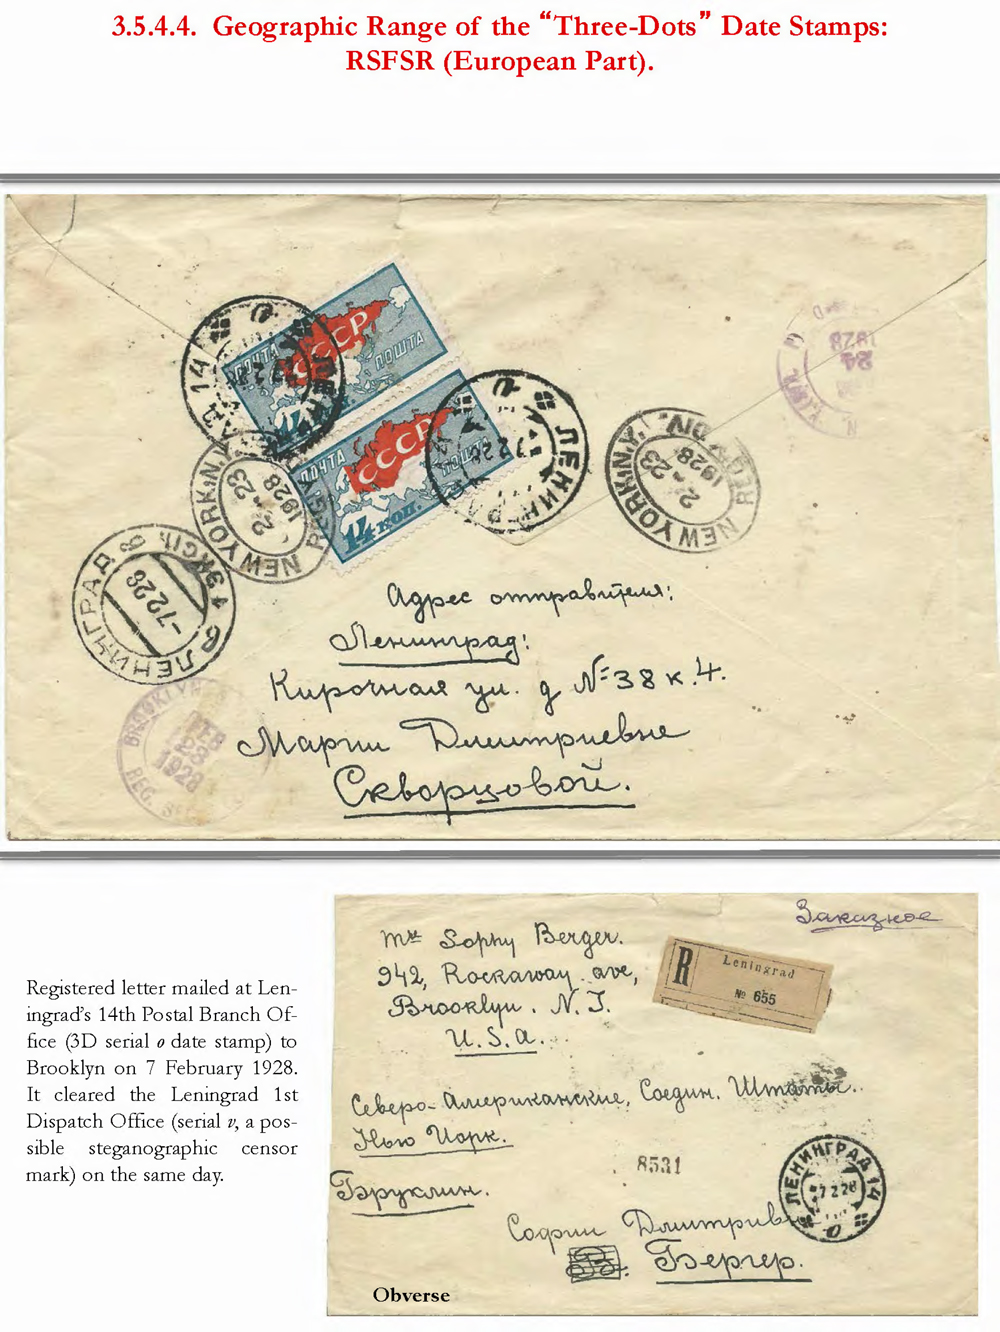 3.5.4.4. Geographic Range of the “Three-Dots” Date Stamps:
RSFSR (European Part).
ПОЧТА
СССР
ПОШТА
ПОЧТА
СССР
ПОШТА
14 коп.
ЛЕНИНГРАД 14
7 2 28
ЛЕНИНГРАД
7 2 28
NEW YORK, N.Y.
2 23
1928
NEW YORK, N.Y.
REG'Y DIV.
2 23
1928
24
1928
ЛЕНИНГРАД
-7 2 28
BROOKLYN
FEB
23
1928
REG.
Адрес отправителя:
Ленинград:
Кирочная ул. д № 38 к. 4.
Марии Дмитриевне
Скворцовой.
Registered letter mailed at Len-
ingrad's 14th Postal Branch Of-
fice (3D serial o date stamp) to
Brooklyn on 7 February 1928.
It cleared the Leningrad 1st
Dispatch Office (serial v, a pos-
sible steganographic censor
mark) on the same day.
Заказное
Mrs Sophy Berger.
942, Rockaway ave,
Brooklyn. N. J.
U. S. A.
R
Leningrad
№ 655
Северо-Американские, Соедин. Штаты.
Нью Иорк.
8531
Бруклин.
ЛЕНИНГРАД 14
7 2 28
о
Софии Дмитрив
Бергер.
Obverse